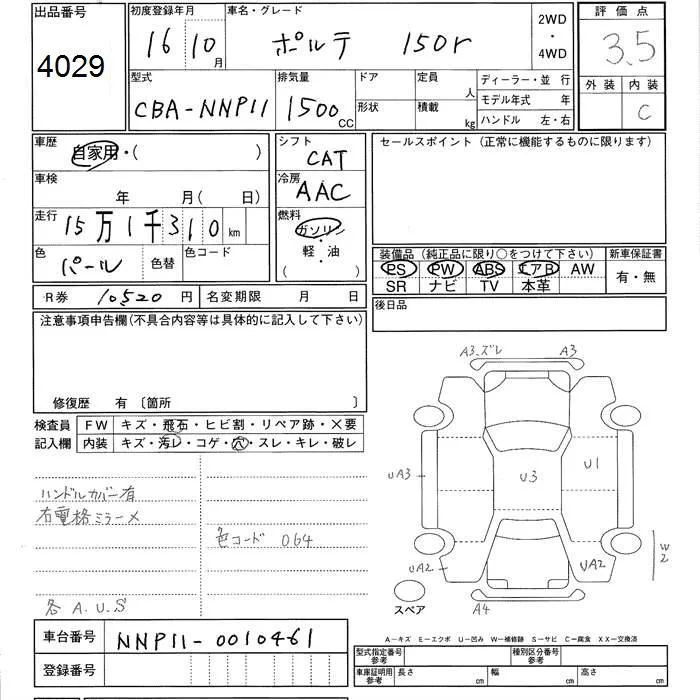 出品番号 4029
初度登録年月 16 10月
車名・グレード ポルテ 150r
2WD・4WD
評価点 3.5
型式 CBA-NNP11
排気量 1500cc
ドア
形状
定員 人
積載 kg
ディーラー・並 行
モデル年式 年
ハンドル 左・右
外装 内装 C
車歴 自家用・( )
シフト CAT
セールスポイント (正常に機能するものに限ります)
車検 年 月(日)
冷房 AAC
走行 15万1千310km
燃料 ガソリン・軽・油・( )
色 パール 色替 色コード
装備品(純正品に限り○をつけて下さい) 新車保証書
PS PW ABS エアB AW 有・無
SR ナビ TV 本革
R券 10520円 名変期限 月 日
後日品
注意事項申告欄(不具合内容等は具体的に記入して下さい)
修復歴 有 〔箇所 〕
検査員 FW キズ・飛石・ヒビ割・リペア跡・×要
記入欄 内装 キズ・汚レ・コゲ・穴・スレ・キレ・破レ
ハンドルカバー有
右電格ミラーメ
色コード 064
各 A.U.S
A3.ズレ A3
UA3 U3 U1
UA2 UA2 W2
スペア A4
車台番号 NNP11-0010461
登録番号
A-キズ E-エクボ U-凹み W-補修跡 S-サビ C-腐食 XX-交換済
型式指定番号 参考 種別区分番号 参考
車庫証明用 参考 長さ cm 幅 cm 高さ cm